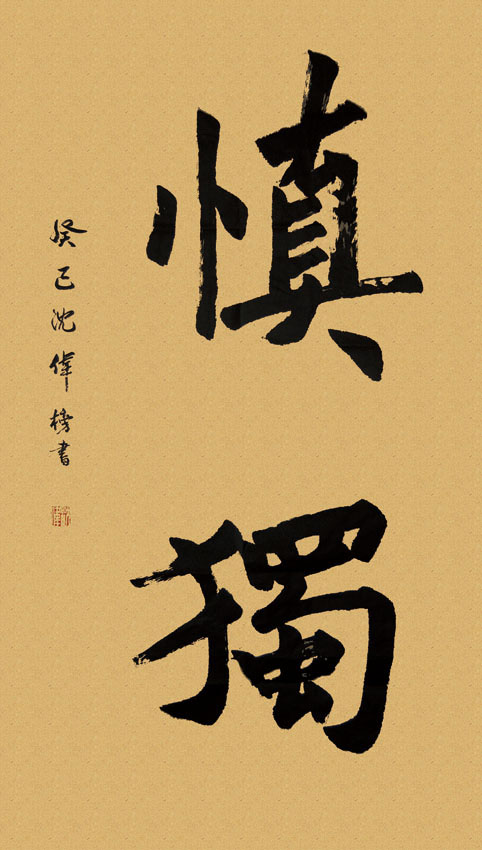 慎獨
癸巳沈偉榜書